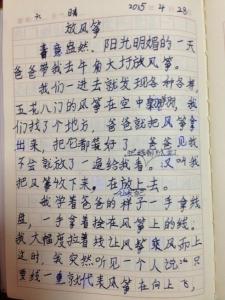 六 晴 2015 4 28
放风筝
春意盎然、阳光明媚的一天
爸爸带我去牛角大圩放风筝。
我们一进去就发现各种各样,
五花八门的风筝在空中
们找了个地方,爸爸就把风筝拿
出来,把它都装好了 爸爸见我
不会就放了一遍给我看。又叫我
把风筝放下来,在放上去。
我学着爸爸的样子一手拿线
盘,一手拿拴在风筝上的线。
我大幅度拉着线让风筝乘风而上
这时,我突然听见一个人说:“只
要线一重就代表风筝在向上飞,